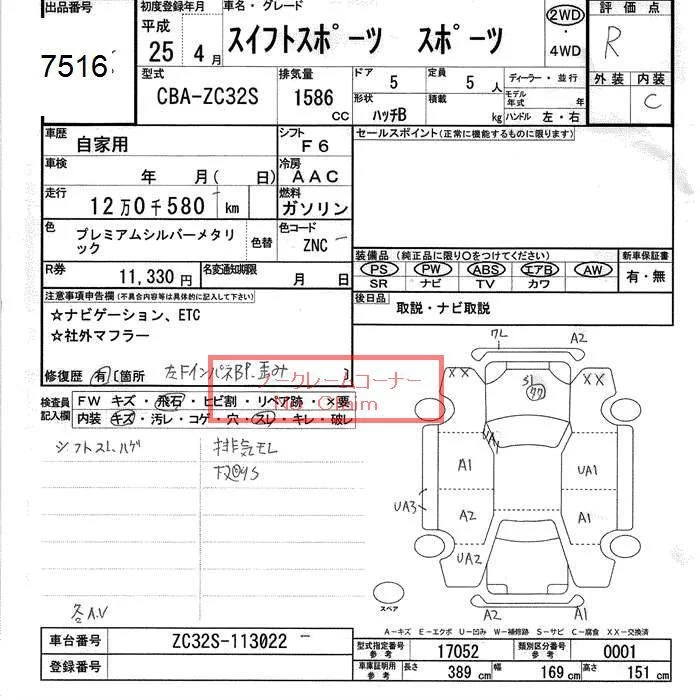 出品番号 初度登録年月 車名・グレード 2WD ・ 4WD 評価点
7516 平成 25年 4月 スイフトスポーツ スポーツ R
型式 排気量 ドア 定員 ディーラー・並行 外装 内装
CBA-ZC32S 1586 CC 5 5人 モデル年式 年 C
形状 積載
ハッチB kg ハンドル 左・右
車歴 シフト セールスポイント(正常に機能するものに限ります)
自家用 F6
車検 冷房
年 月( 日) AAC
走行 燃料
12万0千580 km ガソリン
色 色替 色コード
プレミアムシルバーメタリ
ック ZNC
装備品 (純正品に限り〇をつけてください) 新車保証書
PS PW ABS エアB AW 有・無
SR ナビ TV カワ
R券 11,330円 名変通知期限 月 日
後日品 取説・ナビ取説
注意事項申告欄(不具合内容等は具体的に記入して下さい)
☆ナビゲーション、ETC
☆社外マフラー
修復歴 有 〔箇所 左FインパネBP.歪み 〕
ノークレームコーナー
No Claim
検査員記入欄 FW キズ・飛石・ヒビ割・リペア跡・×要
内装 キズ・汚レ・コゲ・穴・スレ・キレ・破レ
シフトスレ、ハゲ 排気モレ
下廻りS
各A.V
7L A2
XX S1 XX
A1
A1 UA1
UA3 A2 A1
UA2
スペア A2 A1
A-キズ E-エクボ U-凹み W-補修跡 S-サビ C-腐食 XX-交換済
車台番号 ZC32S-113022
登録番号
型式指定番号 参考 17052 類別区分番号 参考 0001
車庫証明用 参考 長さ 389 cm 幅 169 cm 高さ 151 cm